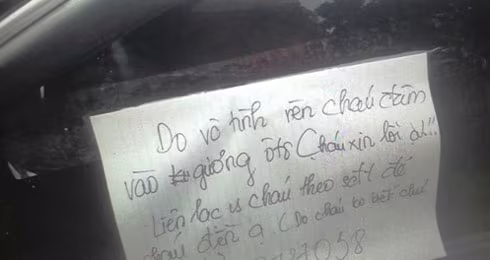 Do vô tình nên cháu đâm
vào gương ôtô (cháu xin lỗi ạ!..
Liên lạc vs cháu theo sđt để
cháu đền ạ (Do cháu ko biết chú
37058